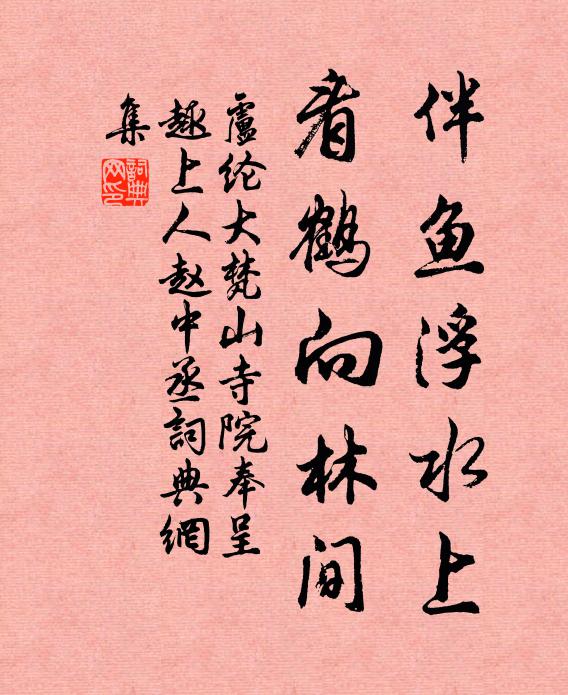 伴鱼浮水上
看鹤向林间
盧纶大梵山寺院奉呈
趣上人赵中丞詞典網
集
詞典
网印